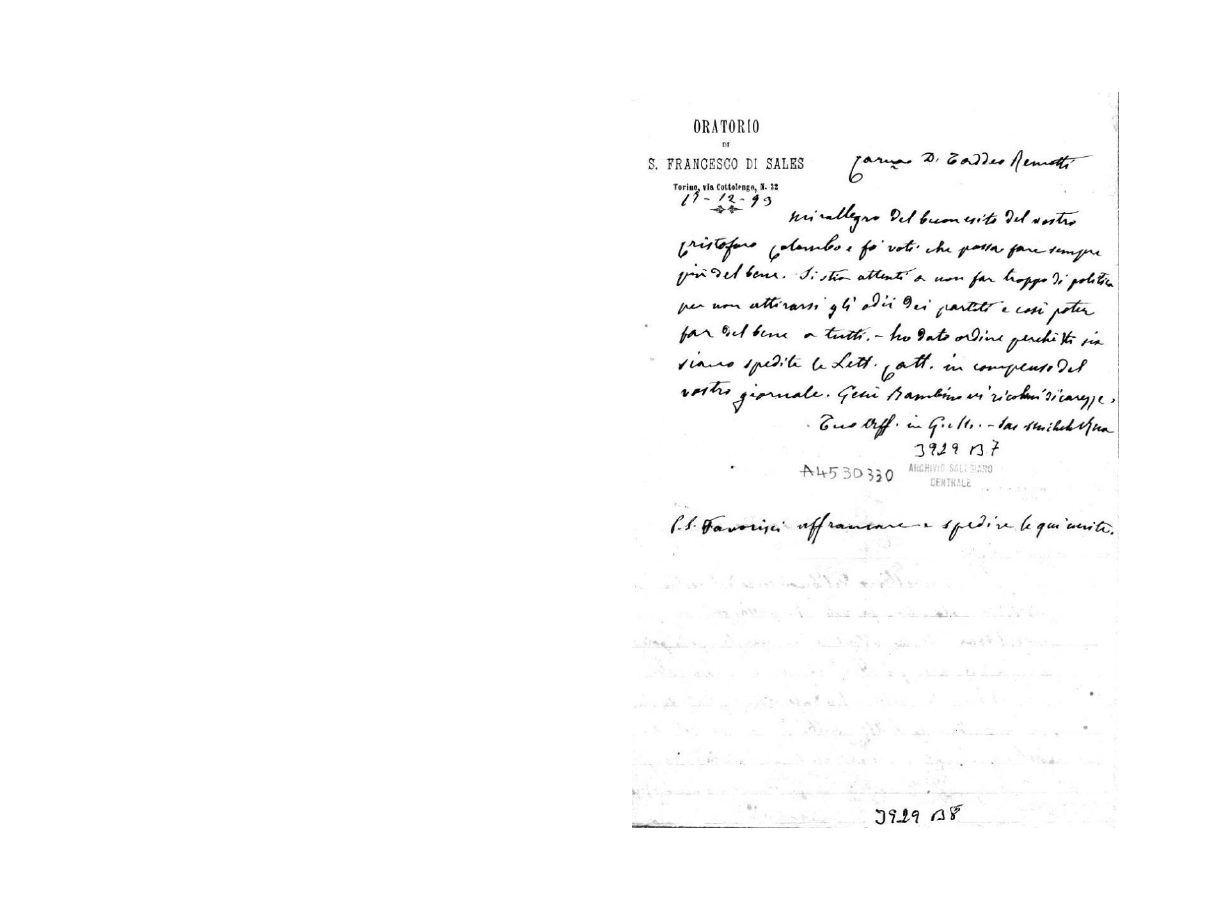 ORATORIO
DI
S. FRANCESCO DI SALES
Torino, via Cottolengo, N. 32
19-12-99
Carmo D. Taddeo Remotti
Mi rallegro del buon esito del vostro
Cristoforo Colombo e fo voti che possa fare sempre
più del bene. Si stia attenti a non far troppo di politica
per non attirarsi gli odii dei partiti e così poter
far del bene a tutti. - ho dato ordine perchè Vi
siano spedite le Lett. Catt. in compenso del
vostro giornale. Gesù Bambino vi ricolmi di carezze.
Tuo aff. in G. - Sac. Michele Rua
3929 B7
A4530330
ARCHIVIO SALESIANO
CENTRALE
P.S. Favorisci affrancare e spedire le qui unite.
3929 B8